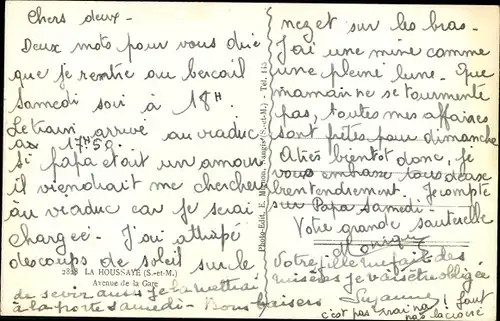 Chers deux -
Deux mots pour vous dire
que je rentre au bercail
samedi soir à 18H
Le train arrive au viaduc
à 17H50.
Si papa était un amour
il viendrait me chercher
au viaduc car je serai
chargée. J'ai attrapé
des coups de soleil sur le
nez et sur les bras.
J'ai une mine comme
une pleine lune. Que
maman ne se tourmente
pas, toutes mes affaires
sont prêtes pour dimanche
A très bientôt donc, je
vous embrasse tous deux
bien tendrement. Je compte
sur Papa Samedi -
Votre grande sauterelle
Monique
Votre fille me fait des
misères je vais être obligée
de sévir aussi je la mettrai
à la porte samedi - Bons baisers
Suzanne
c'est pas vrai na! faut
pas la croire
2358 LA HOUSSAYE (S.-et-M.)
Avenue de la Gare
Photo-Edit. E. Mignon, Nangis (S.-et-M.) - Tél. 113